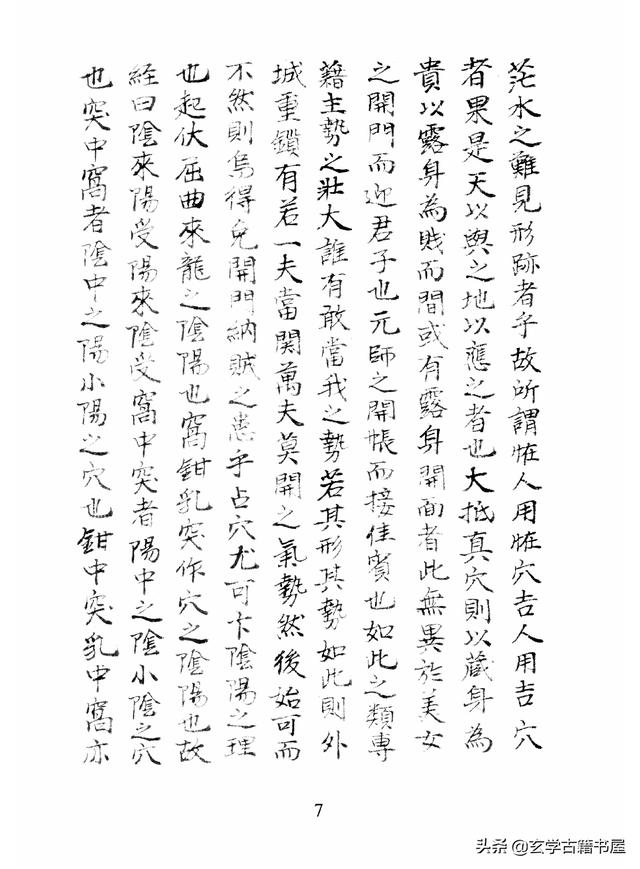 茫水之難見形跡者乎故所謂恠人用恠穴吉人用吉穴
者果是天以與之地以應之者也大抵真穴則以藏身為
貴以露身為賤而間或有露身開面者此無異於美女
之開門而迎君子也元帥之開帳而接佳賓也如此之類專
藉主勢之壯大誰有敢當我之勢若其形其勢如此則外
城重鎖有若一夫當関萬夫莫開之氣勢然後始可而
不然則烏得免開門納賊之患乎占穴尤可卞陰陽之理
也起伏屈曲來龍之陰陽也窩鉗乳突作穴之陰陽也故
経曰陰來陽受陽來陰受窩中突者陽中之陰小陰之穴
也突中窩者陰中之陽小陽之穴也鉗中突乳中窩亦
7
头条@玄学古籍书屋